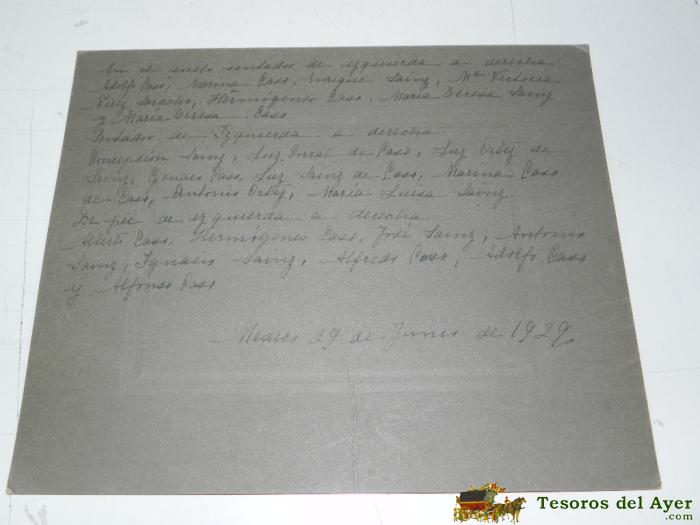 En el suelo sentados de izquierda a derecha:
Adolfo Caso, Marina Caso, Enrique Sainz, Mª Victoria
Saracho, Hermógenes Caso, María Teresa Sainz
y María Teresa Caso
Sentados de Izquierda a derecha:
Concepción Sainz, Luz Corral de Caso, Luz Ortiz de
Sainz, Genaro Caso, Luz Sainz de Caso, Marina Caso
de Caso, Antonio Ortiz, María Luisa Sainz.
De pie de izquierda a derecha
Alberto Caso, Hermógenes Caso, José Sainz, Antonio
Sainz, Ignacio Sainz, Alfredo Caso, Adolfo Caso
y Alfonso Caso
Mexico 29 de Junio de 1929
Tesoros del Ayer
.com